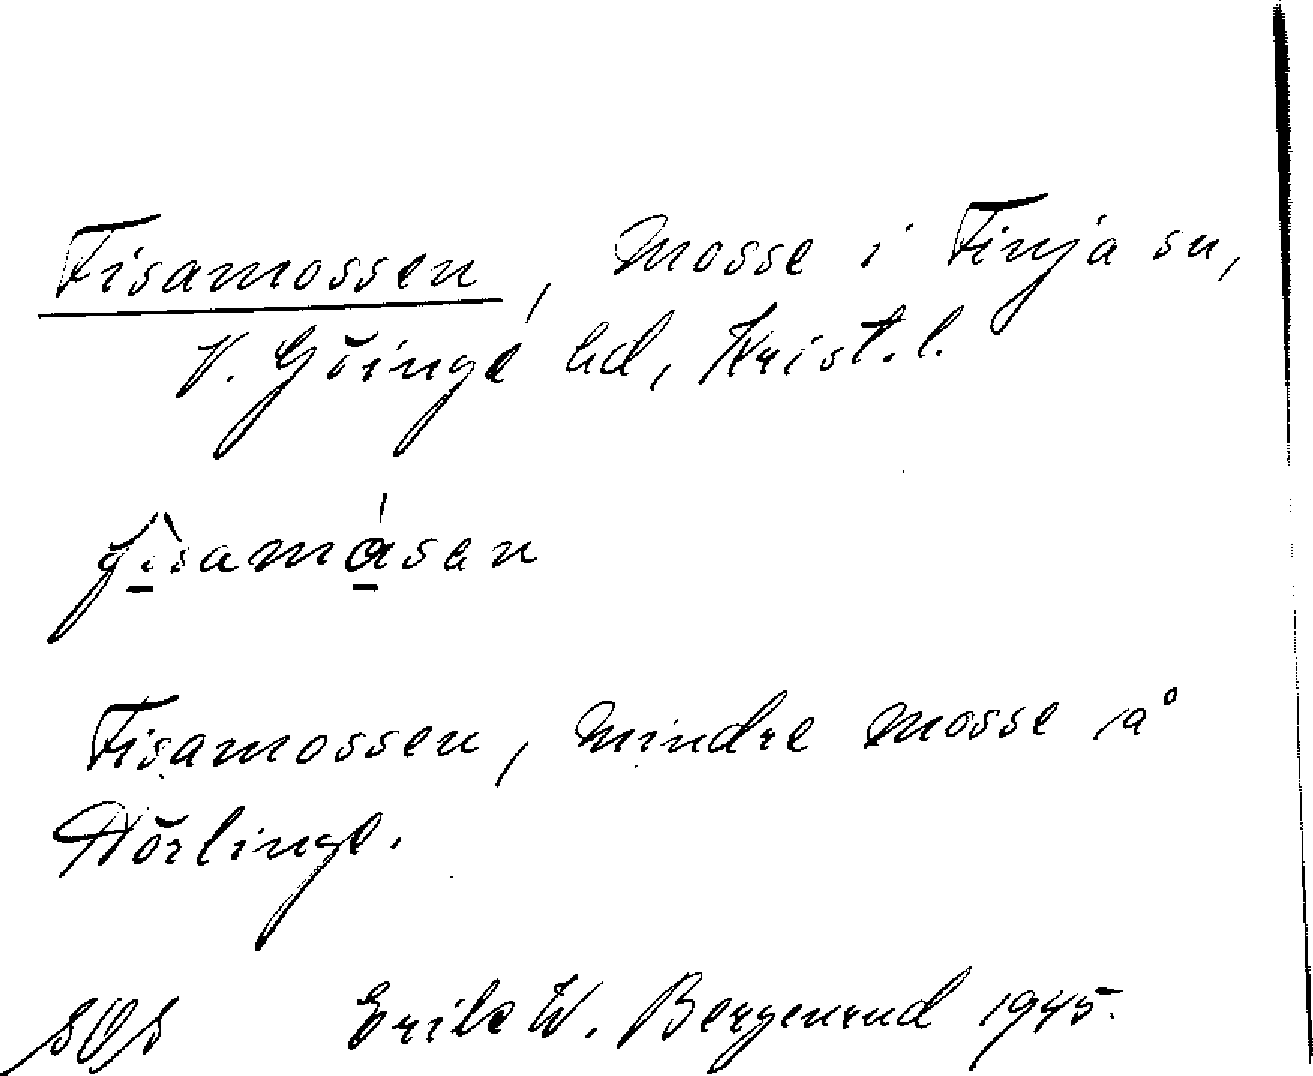 Fisamossen, mosse i Finja sn,
V. Göinge hd, Krist. l.
fìsamásen
Fisamossen, mindre mosse på
Hörlinge.
SOS Erik W. Bergenrud 1945.